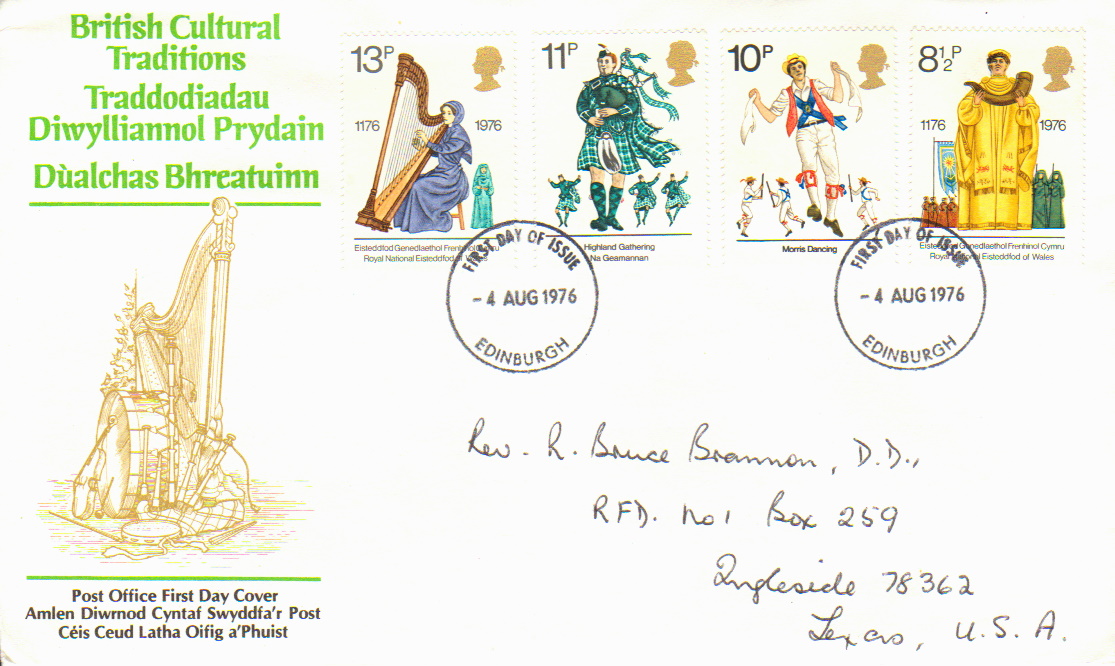 British Cultural
Traditions
Traddodiadau
Diwylliannol Prydain
Dùalchas Bhreatuinn
13P
1176 1976
Eisteddfod Genedlaethol Frenhinol Cymru
Royal National Eisteddfod of Wales
11P
Highland Gathering
Na Geamannan
10P
Morris Dancing
8½P
1176 1976
Eisteddfod Genedlaethol Frenhinol Cymru
Royal National Eisteddfod of Wales
FIRST DAY OF ISSUE
- 4 AUG 1976
EDINBURGH
FIRST DAY OF ISSUE
- 4 AUG 1976
EDINBURGH
Rev. R. Bruce Brannon, D.D.,
RFD. No 1 Box 259
Ingleside 78362
Texas, U.S.A.
Post Office First Day Cover
Amlen Diwrnod Cyntaf Swyddfa'r Post
Céis Ceud Latha Oifig a'Phuist